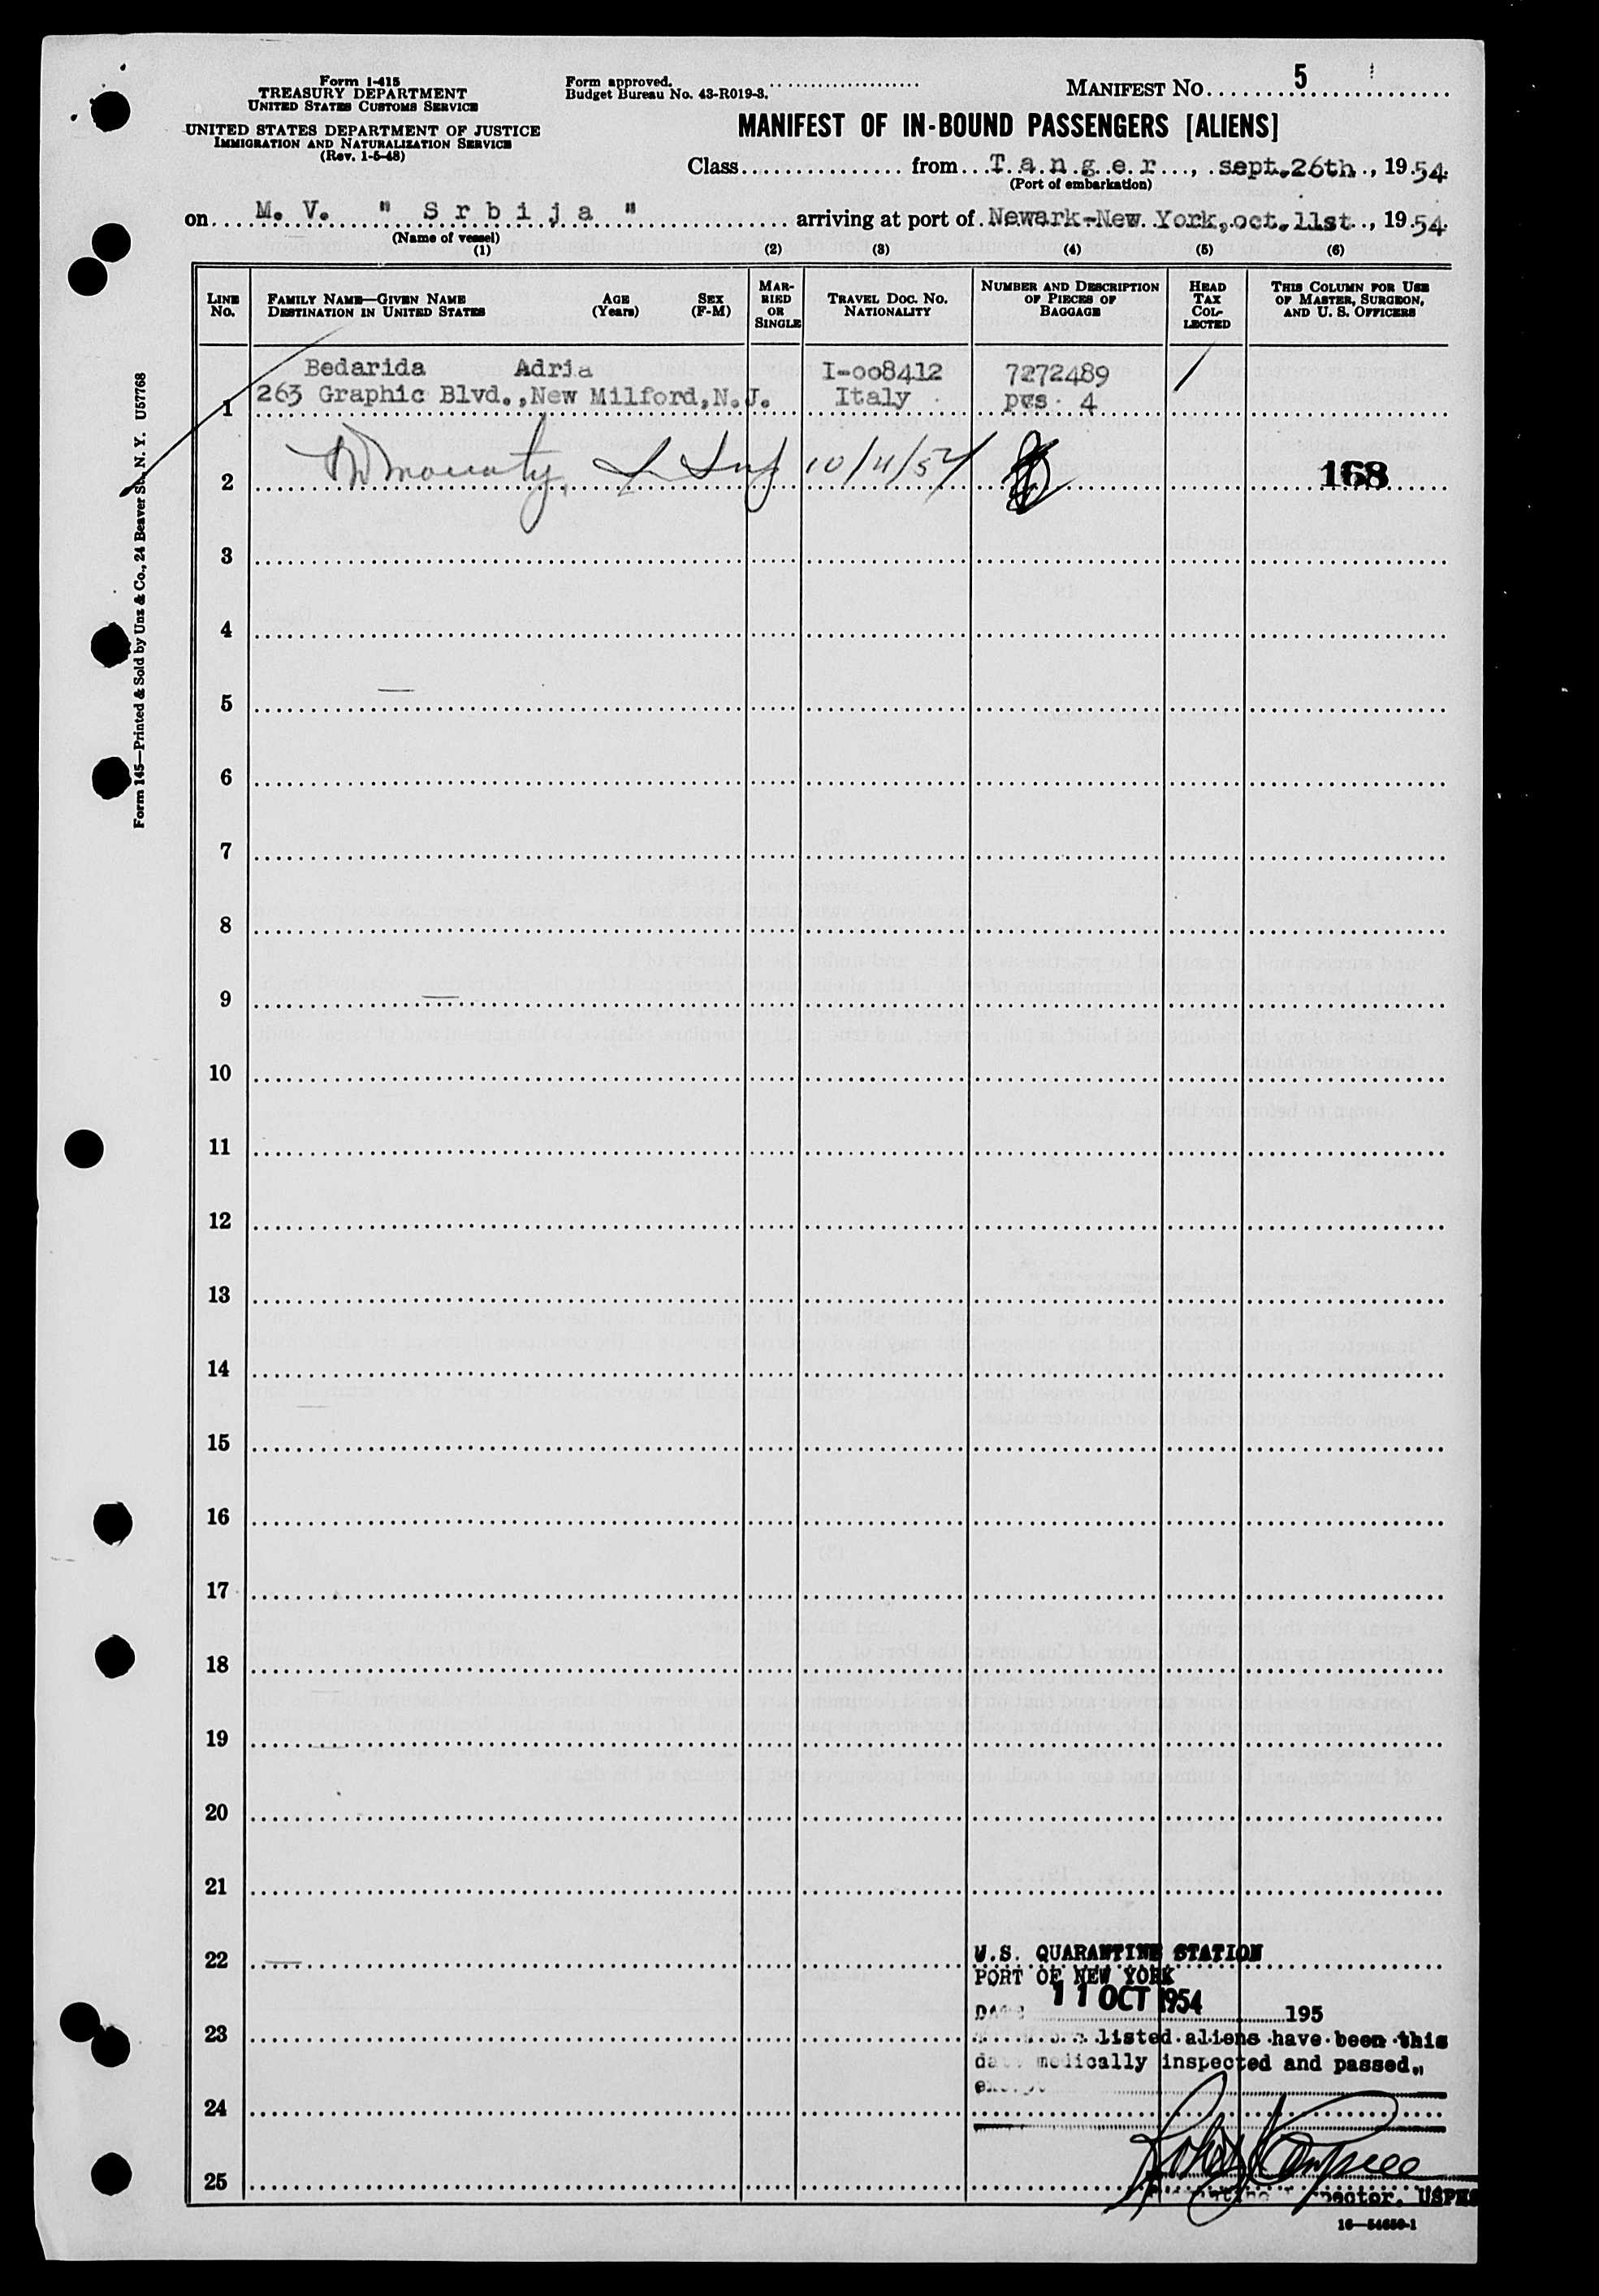 Form I-415
TREASURY DEPARTMENT
UNITED STATES CUSTOMS SERVICE
UNITED STATES DEPARTMENT OF JUSTICE
IMMIGRATION AND NATURALIZATION SERVICE
(Rev. 1-5-48)
Form approved.
Budget Bureau No. 43-R019-3.
MANIFEST NO. 5
MANIFEST OF IN-BOUND PASSENGERS [ALIENS]
Class from T a n g e r, sept.26th, 1954.
(Port of embarkation)
on M. V. " S r b i j a " arriving at port of Newark-New York,oct.11st., 1954.
(Name of vessel)
(1) (2) (3) (4) (5) (6)
LINE No. FAMILY NAME—GIVEN NAME DESTINATION IN UNITED STATES AGE (Years) SEX (F-M) MARRIED OR SINGLE TRAVEL DOC. NO. NATIONALITY NUMBER AND DESCRIPTION OF PIECES OF BAGGAGE HEAD TAX COLLECTED THIS COLUMN FOR USE OF MASTER, SURGEON, AND U. S. OFFICERS
Bedarida Adria I-oo8412 7272489
1 263 Graphic Blvd.,New Milford,N.J. Italy pcs 4
2 10/11/54 168
3
4
5
6
7
8
9
10
11
12
13
14
15
16
17
18
19
20
21
22
U.S. QUARANTINE STATION
PORT OF NEW YORK
DATE 11 OCT 1954 195
23
listed aliens have been this
date medically inspected and passed,
except
24
25
Inspector, USPHS
16—54650-1
Form 145—Printed & Sold by Unz & Co., 24 Beaver St., N. Y. U57768